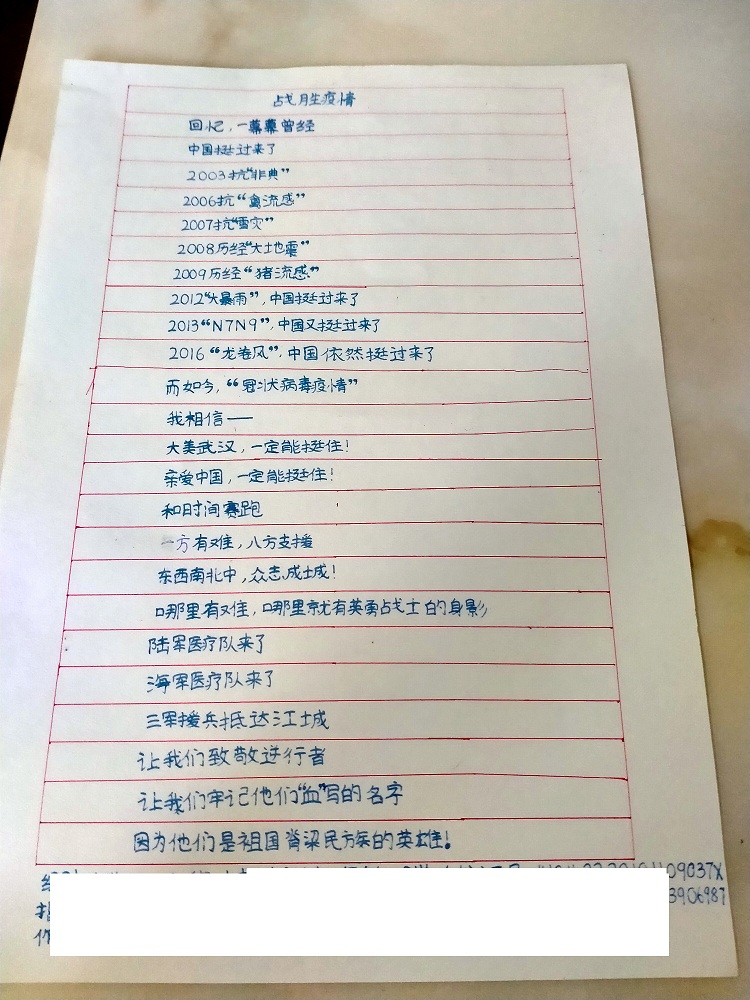 战胜疫情
回忆，一幕幕曾经
中国挺过来了
2003抗“非典”
2006抗“禽流感”
2007抗“雪灾”
2008历经“大地震”
2009历经“猪流感”
2012“大暴雨”，中国挺过来了
2013“N7N9”，中国又挺过来了
2016“龙卷风”，中国依然挺过来了
而如今，“冠状病毒疫情”
我相信——
大美武汉，一定能挺住！
亲爱中国，一定能挺住！
和时间赛跑
一方有难，八方支援
东西南北中，众志成城！
哪里有难，哪里就有英勇战士的身影
陆军医疗队来了
海军医疗队来了
三军援兵抵达江城
让我们致敬逆行者
让我们牢记他们“血”写的名字
因为他们是祖国脊梁民族的英雄！